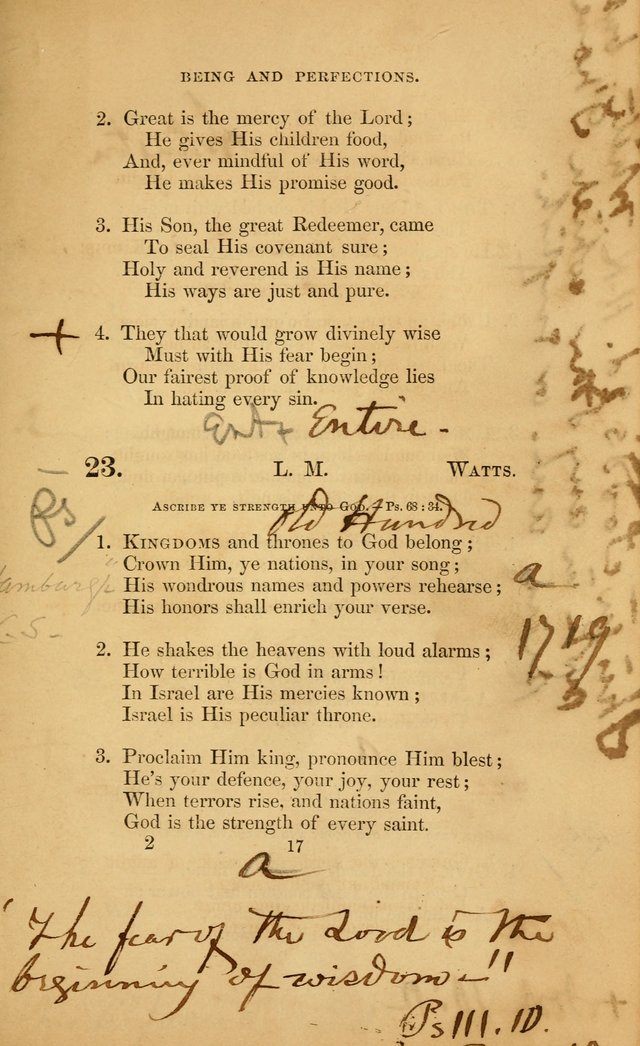 BEING AND PERFECTIONS.
2. Great is the mercy of the Lord;
He gives His children food,
And, ever mindful of His word,
He makes His promise good.
3. His Son, the great Redeemer, came
To seal His covenant sure;
Holy and reverend is His name;
His ways are just and pure.
4. They that would grow divinely wise
Must with His fear begin;
Our fairest proof of knowledge lies
In hating every sin.
Entire -
23. L. M. WATTS.
ASCRIBE YE STRENGTH UNTO GOD. Ps. 68 : 34.
Old Hundred
1. KINGDOMS and thrones to God belong;
Crown Him, ye nations, in your song;
His wondrous names and powers rehearse;
His honors shall enrich your verse.
a
1719
2. He shakes the heavens with loud alarms;
How terrible is God in arms!
In Israel are His mercies known;
Israel is His peculiar throne.
3. Proclaim Him king, pronounce Him blest;
He's your defence, your joy, your rest;
When terrors rise, and nations faint,
God is the strength of every saint.
2 17
a
"The fear of the Lord is the
beginning of wisdom-"
Ps 111. 10.